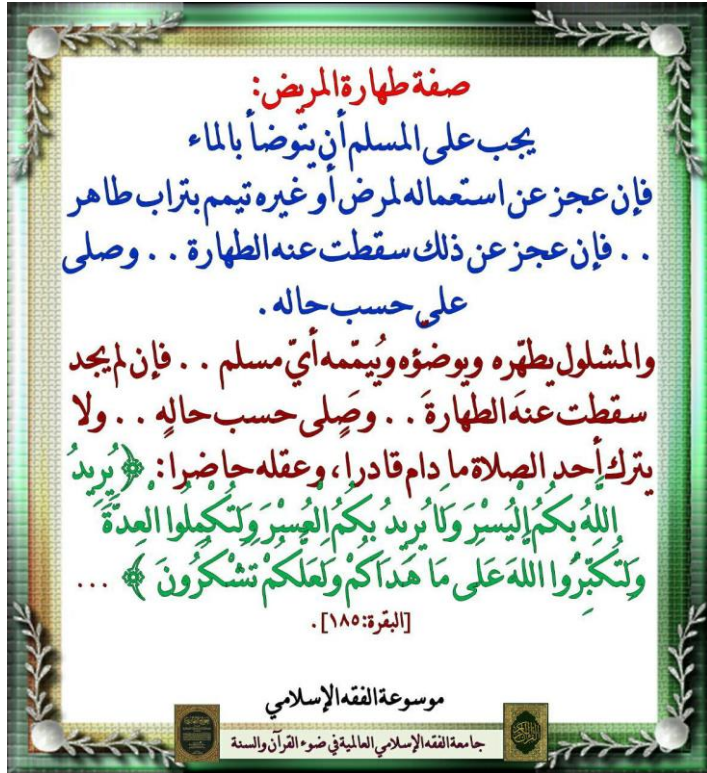 صفة طهارة المريض:
يجب على المسلم أن يتوضأ بالماء
فإن عجز عن استعماله لمرض أو غيره تيمم بتراب طاهر
. . فإن عجز عن ذلك سقطت عنه الطهارة . . وصلى
على حسب حاله .
والمشلول يطهّره ويوضؤه ويُيمّمه أيّ مسلم . . فإن لم يجد
سقطت عنه الطهارةَ . . وصَلى حسب حالهِ . . ولا
يترك أحد الصلاة ما دام قادرا، وعقله حاضرا: ﴿ يُرِيدُ
اللَّهُ بِكُمُ الْيُسْرَ وَلَا يُرِيدُ بِكُمُ الْعُسْرَ وَلِتُكْمِلُوا الْعِدَّةَ
وَلِتُكَبِّرُوا اللَّهَ عَلَى مَا هَدَاكُمْ وَلَعَلَّكُمْ تَشْكُرُونَ ﴾ ...
[البقرة: ١٨٥] .
موسوعة الفقه الإسلامي
جامعة الفقه الإسلامي العالمية في ضوء القرآن والسنة